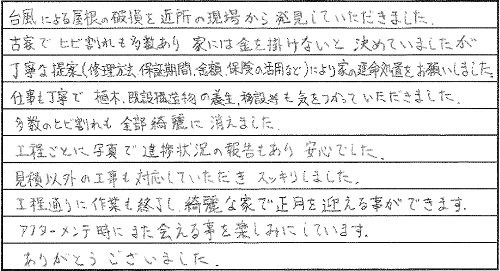 台風による屋根の破損を近所の現場から発見していただきました。
古家でヒビ割れも多数あり 家には金を掛けないと 決めていましたが
丁寧な提案(修理方法、保証期間、金額、保険の活用など)により家の延命処置をお願いしました。
仕事も丁寧で 植木、既設構造物の養生、移設等も気をつかっていただきました。
多数のヒビ割れも 全部綺麗に 消えました。
工程ごとに写真で進捗状況の報告もあり 安心でした。
見積以外の工事も対応していただき スッキリしました。
工程通りに作業も終了し 綺麗な家で正月を迎える事ができます。
アフターメンテ時にまた会える事を楽しみにしています。
ありがとうございました。